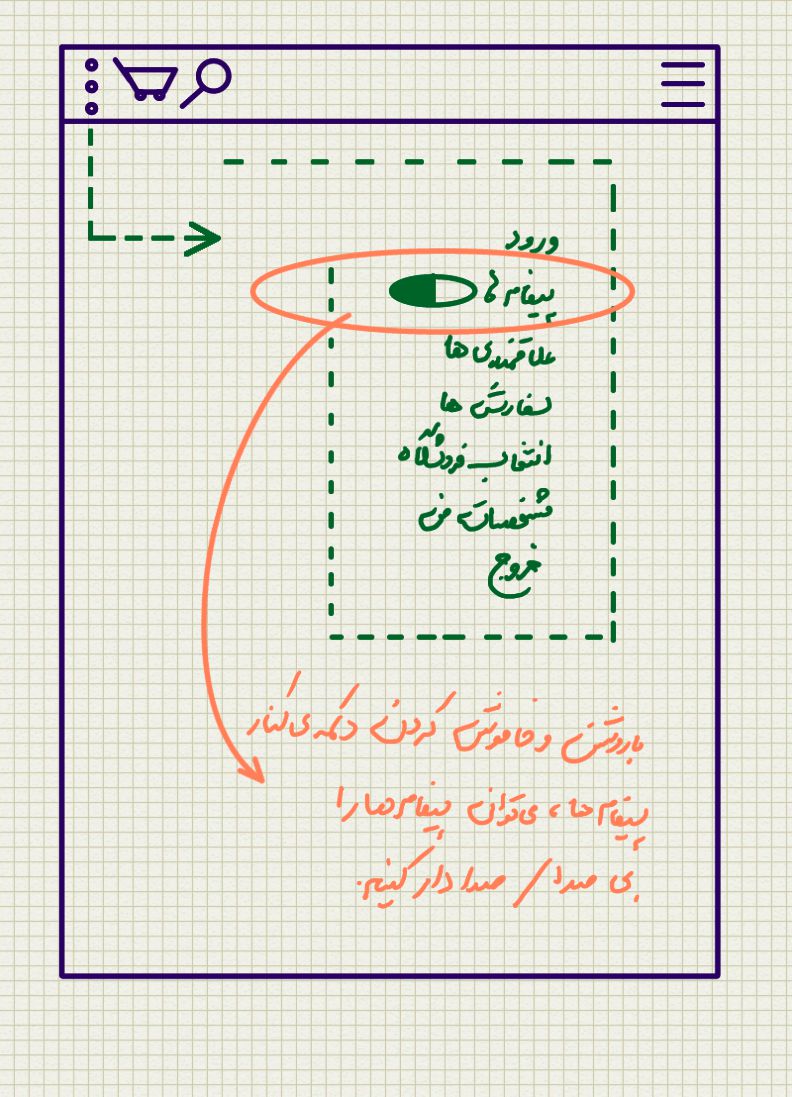 ورود
پیغام ها
علاقمندی ها
سفارش ها
انتخاب فروشگاه
مشخصات من
خروج
با روشن و خاموش کردن دکمه ی کنار
پیغام ها، می توان پیغام ها را
بی صدا / صدا دار کنیم.